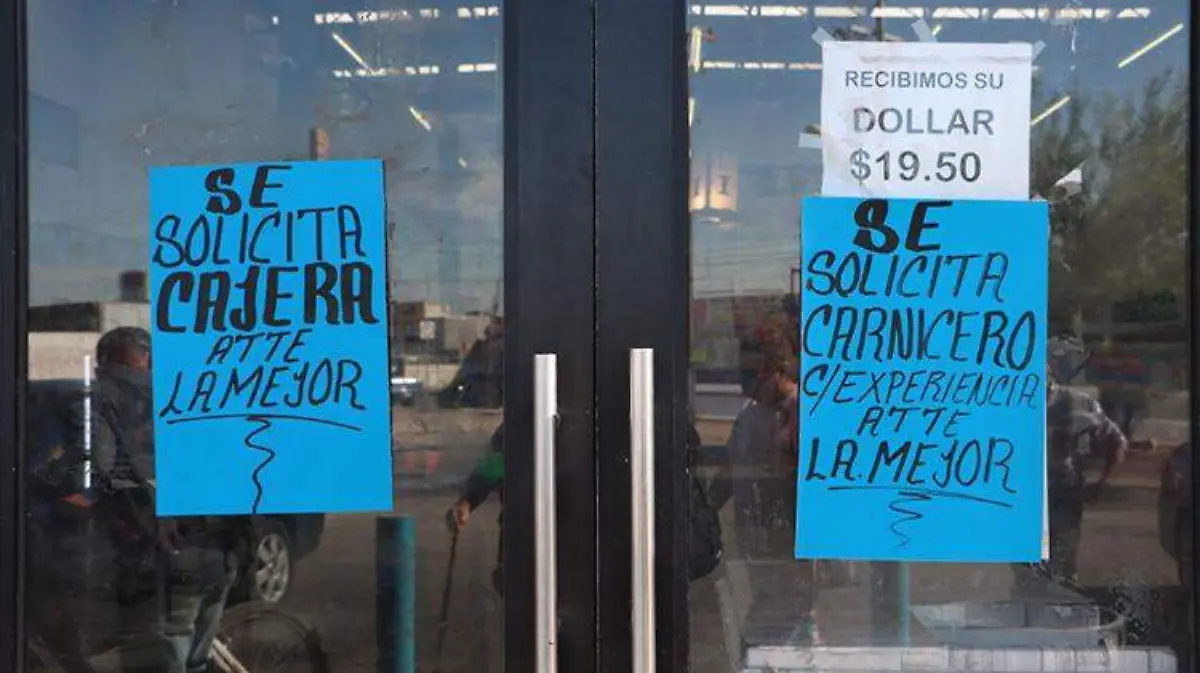 SE
SOLICITA
CAJERA
ATTE
LA MEJOR
RECIBIMOS SU
DOLLAR
$19.50
SE
SOLICITA
CARNICERO
C/EXPERIENCIA
ATTE
LA. MEJOR